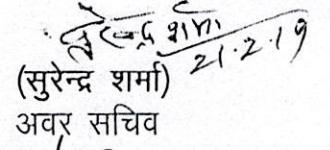 सुरेन्द्र शर्मा
21.2.19
(सुरेन्द्र शर्मा)
अवर सचिव